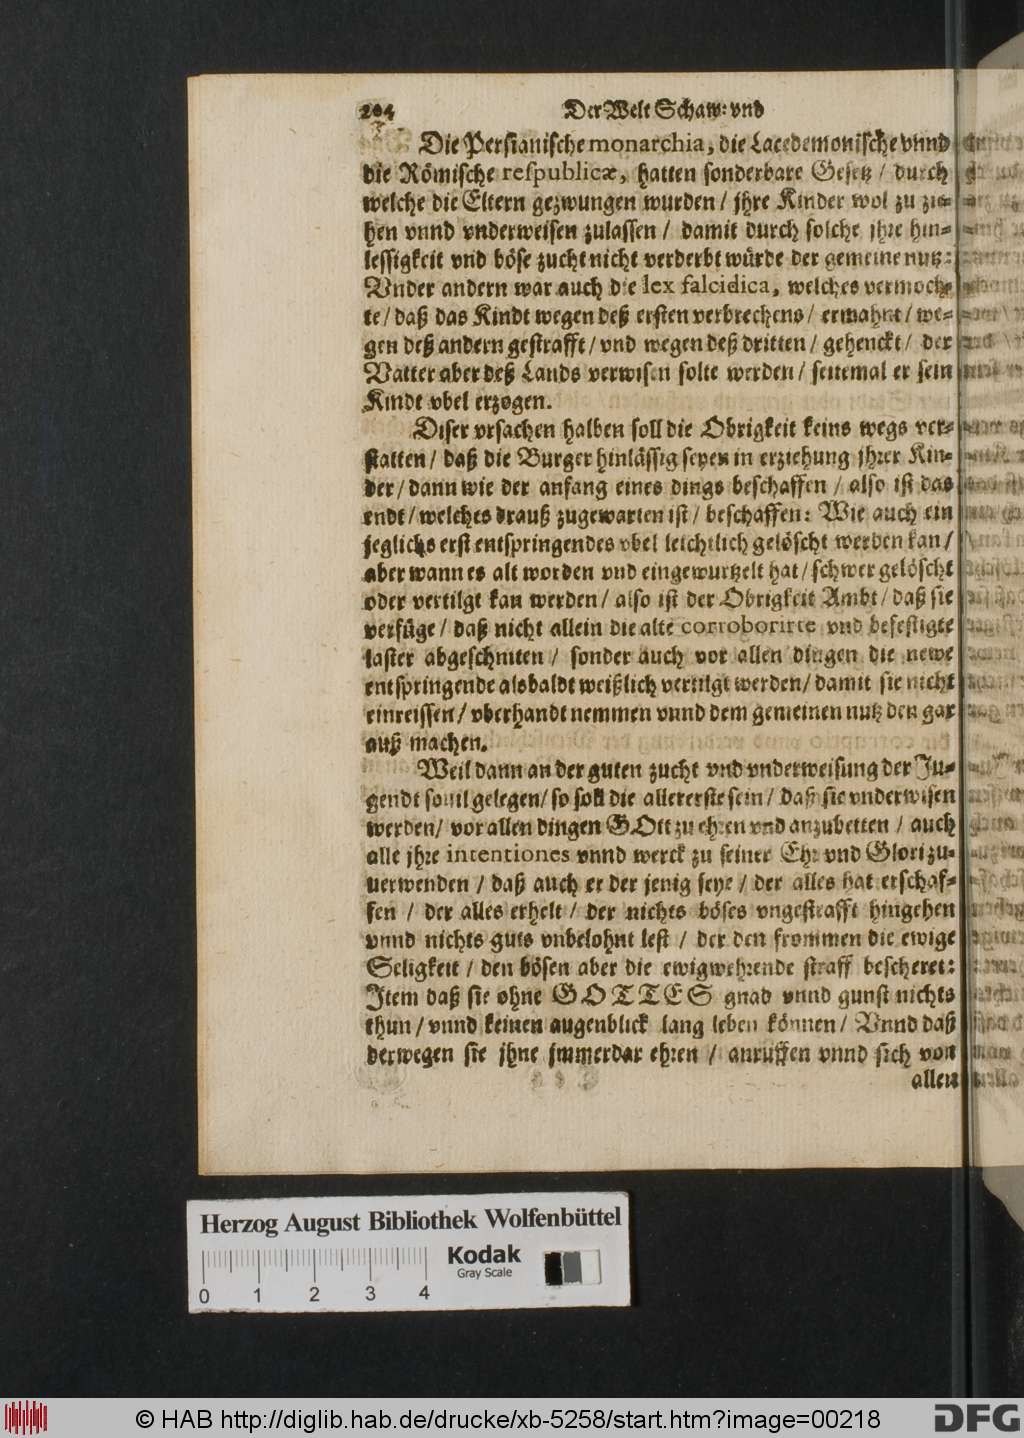 204
Der Welt Schaw: vnd
Die Persianische monarchia, die Lacedemonische vnnd
die Römische respublicæ, hatten sonderbare Gesetz / durch
welche die Eltern gezwungen wurden / jhre Kinder wol zu zie-
hen vnnd vnderweisen zulassen / damit durch solche jhre hin-
lessigkeit vnd böse zucht nicht verderbt würde der gemeine nutz:
Vnder andern war auch die lex falcidica, welches vermoch-
te / daß das Kindt wegen deß ersten verbrechens / ermahnt / we-
gen deß andern gestrafft / vnd wegen deß dritten / gehenckt / der
Vatter aber deß Lands verwisen solte werden / seitemal er sein
Kindt vbel erzogen.
Diser vrsachen halben soll die Obrigkeit keins wegs ver-
statten / daß die Burger hinlässig seyen in erziehung jhrer Kin-
der / dann wie der anfang eines dings beschaffen / also ist das
endt / welches drauß zugewarten ist / beschaffen: Wie auch ein
jeglichs erst entspringendes vbel leichtlich gelöscht werden kan /
aber wann es alt worden vnd eingewurtzelt hat / schwer gelöscht
oder vertilgt kan werden / also ist der Obrigkeit Ambt / daß sie
verfüge / daß nicht allein die alte corroborirte vnd befestigte
laster abgeschniten / sonder auch vor allen dingen die newe
entspringende alsbaldt weißlich vertilgt werden / damit sie nicht
einreissen / vberhandt nemmen vnnd dem gemeinen nutz den gar
auß machen.
Weil dann an der guten zucht vnd vnderweisung der Ju-
gendt souil gelegen / so soll die allererste sein / daß sie vnderwisen
werden / vor allen dingen GOtt zu ehren vnd anzubetten / auch
alle jhre intentiones vnnd werck zu seiner Ehr vnd Glori zu-
uerwenden / daß auch er der jenig seye / der alles hat erschaf-
fen / der alles erhelt / der nichts böses vngestrafft hingehen
vnnd nichts guts vnbelohnt lest / der den frommen die ewige
Seligkeit / den bösen aber die ewigwehrende straff bescheret:
Item daß sie ohne GOTTES gnad vnnd gunst nichts
thun / vnnd keinen augenblick lang leben können / Vnnd daß
derwegen sie jhne jmmerdar ehren / anruffen vnnd sich von
allen
Herzog August Bibliothek Wolfenbüttel
Kodak
Gray Scale
0 1 2 3 4
© HAB http://diglib.hab.de/drucke/xb-5258/start.htm?image=00218
DFG